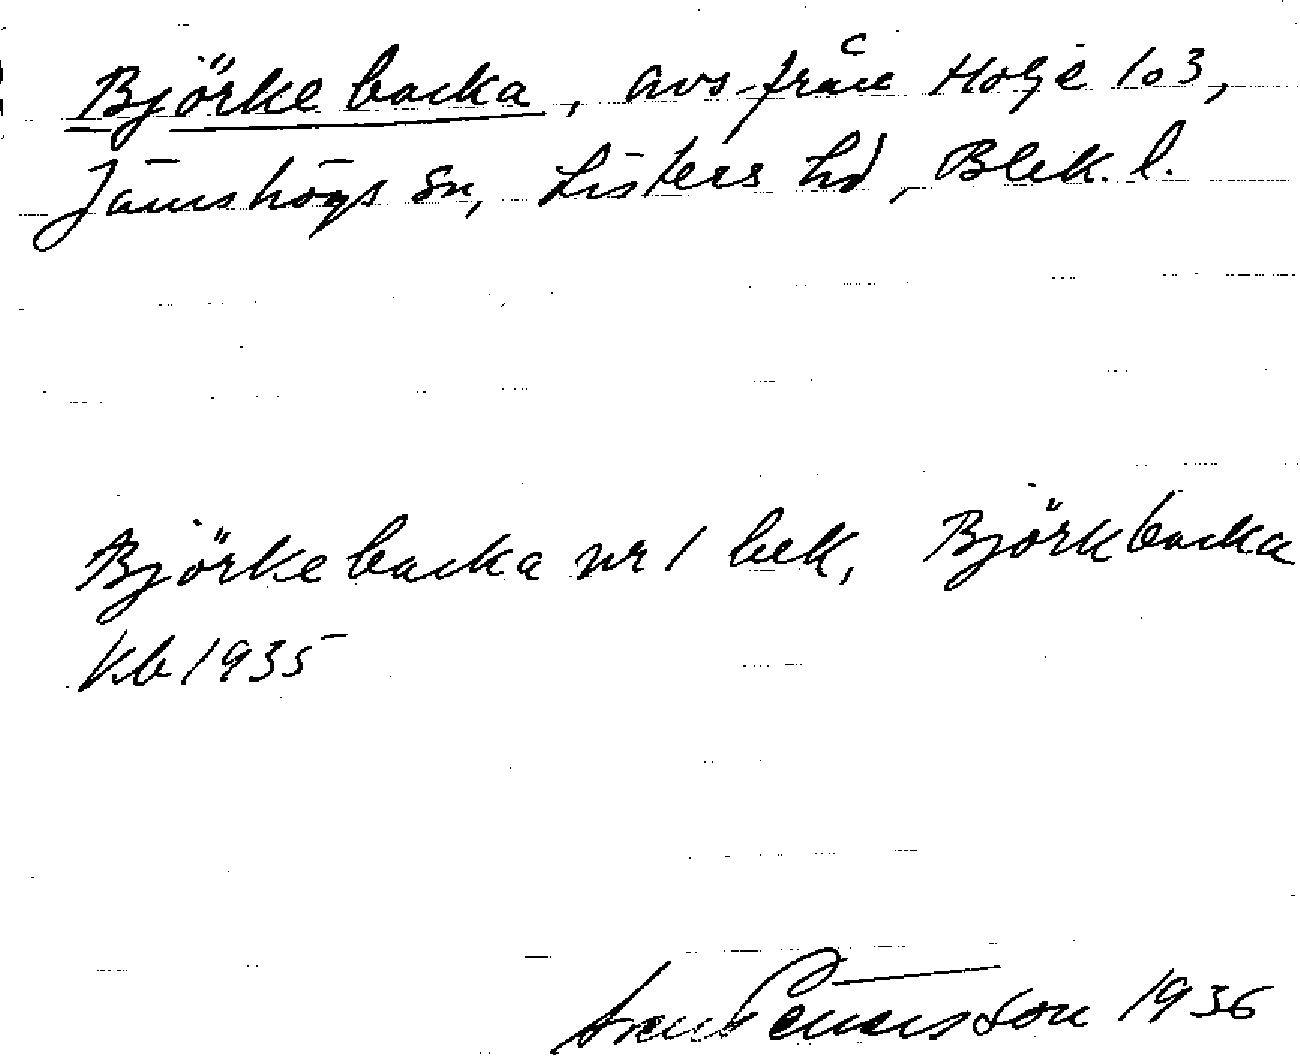 Björkebacka, avs från Holje 103,
Jämshögs sn, Listers hd, Blek. l.
Björkebacka nr 1 bek, Björkbacka
Kb 1935
1936